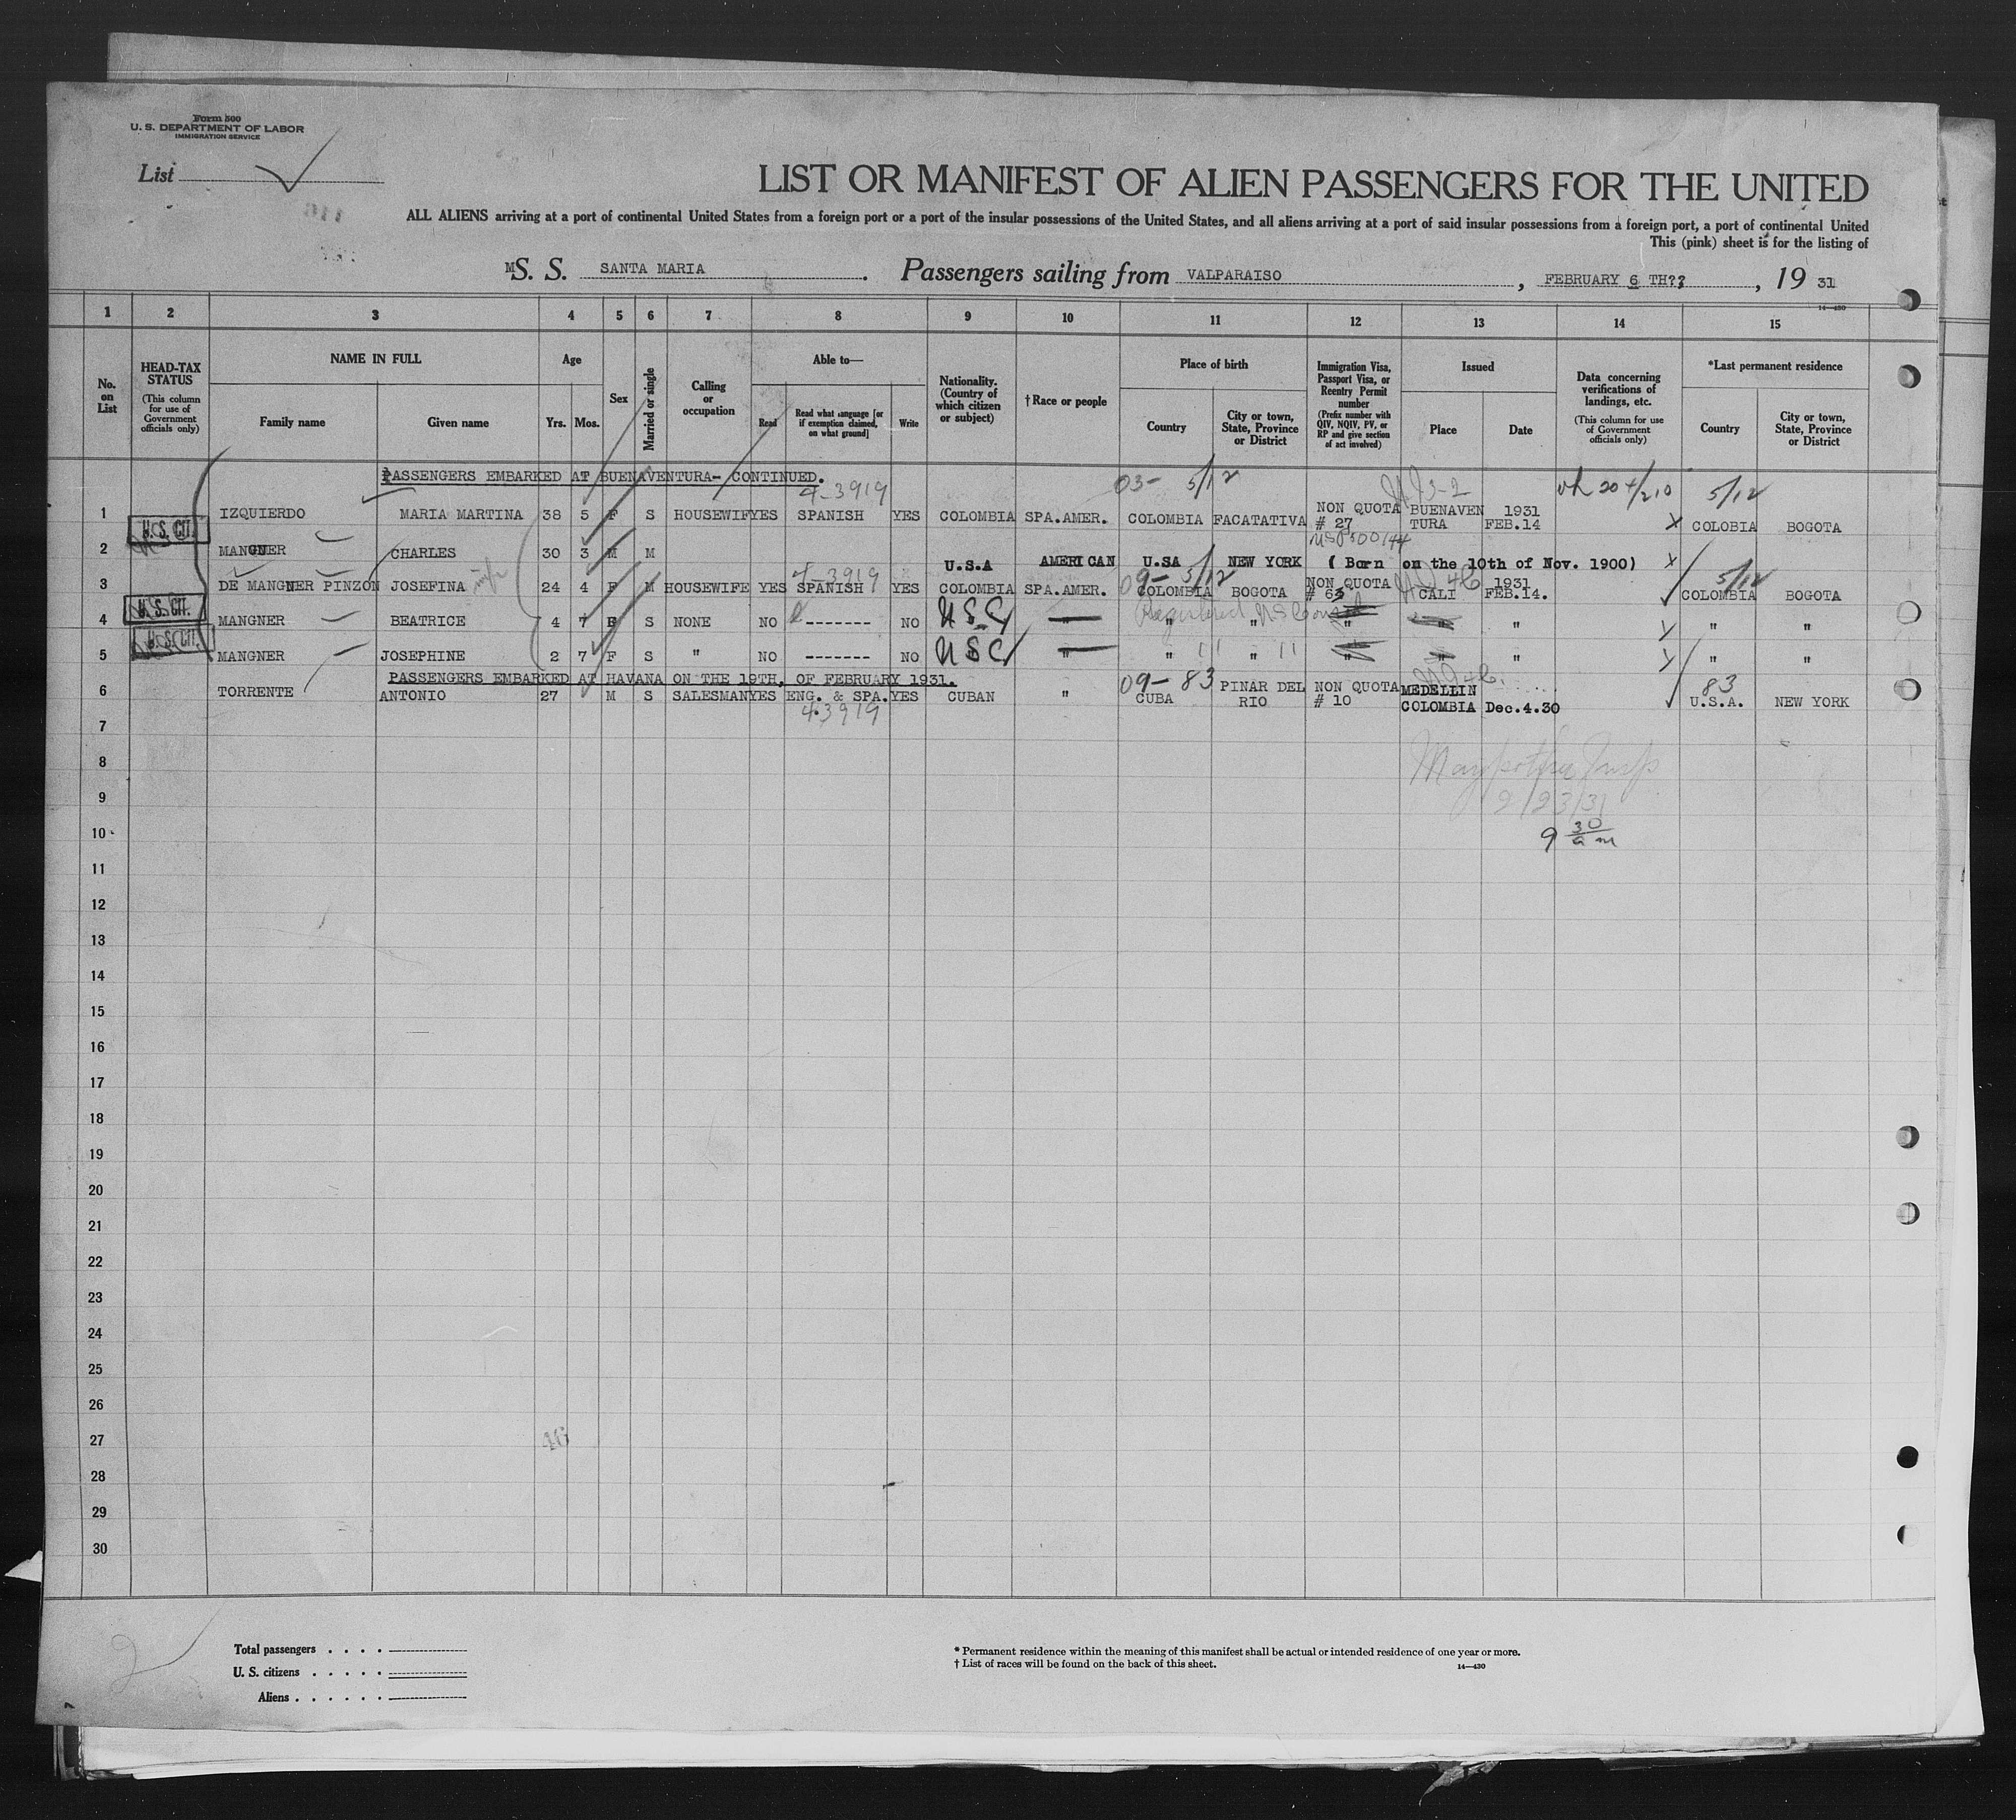 Form 500
U. S. DEPARTMENT OF LABOR
IMMIGRATION SERVICE
List
LIST OR MANIFEST OF ALIEN PASSENGERS FOR THE UNITED
ALL ALIENS arriving at a port of continental United States from a foreign port or a port of the insular possessions of the United States, and all aliens arriving at a port of said insular possessions from a foreign port, a port of continental United
This (pink) sheet is for the listing of
MS. S. SANTA MARIA. Passengers sailing from VALPARAISO, FEBRUARY 6 TH??, 19 31
14—430
1 2 3 4 5 6 7 8 9 10 11 12 13 14 15
No. on List
HEAD-TAX STATUS
(This column for use of Government officials only)
NAME IN FULL
Family name Given name
Age
Yrs. Mos.
Sex
Married or single
Calling or occupation
Able to—
Read
Read what language [or if exemption claimed, on what ground]
Write
Nationality. (Country of which citizen or subject)
† Race or people
Place of birth
Country
City or town, State, Province or District
Immigration Visa, Passport Visa, or Reentry Permit number
(Prefix number with QIV, NQIV, PV, or RP and give section of act involved)
Issued
Place Date
Data concerning verifications of landings, etc.
(This column for use of Government officials only)
*Last permanent residence
Country
City or town, State, Province or District
PASSENGERS EMBARKED AT BUENAVENTURA- CONTINUED.
4-3919 03- 5/12 5/12
1 IZQUIERDO MARIA MARTINA 38 5 F S HOUSEWIFYES SPANISH YES COLOMBIA SPA.AMER. COLOMBIA FACATATIVA NON QUOTA # 27 BUENAVEN TURA 1931 FEB.14 COLOBIA BOGOTA
U. S. CIT.
2 MANGNER CHARLES 30 3 M M U.S.A AMERICAN U.SA NEW YORK ( Born on the 10th of Nov. 1900)
4-3919 09- 5/12 5/12
3 DE MANGNER PINZON JOSEFINA 24 4 F M HOUSEWIFE YES SPANISH YES COLOMBIA SPA.AMER. COLOMBIA BOGOTA NON QUOTA # 63 CALI 1931 FEB.14. COLOMBIA BOGOTA
U. S. CIT.
4 MANGNER BEATRICE 4 7 F S NONE NO ------- NO USC " " " " " " " "
U. S. CIT.
5 MANGNER JOSEPHINE 2 7 F S " NO ------- NO USC " " " " " " " "
PASSENGERS EMBARKED AT HAVANA ON THE 19TH, OF FEBRUARY 1931.
09- 83 83
6 TORRENTE ANTONIO 27 M S SALESMANYES ENG. & SPA.YES CUBAN " CUBA PINAR DEL RIO NON QUOTA # 10 MEDELLIN COLOMBIA Dec.4.30 U.S.A. NEW YORK
4.3919
7
8
9
2/23/31
10
9 30 am
11
12
13
14
15
16
17
18
19
20
21
22
23
24
25
26
27
46
28
29
30
Total passengers . . . .
U. S. citizens . . . . .
Aliens . . . . . .
* Permanent residence within the meaning of this manifest shall be actual or intended residence of one year or more.
† List of races will be found on the back of this sheet.
14—430
2